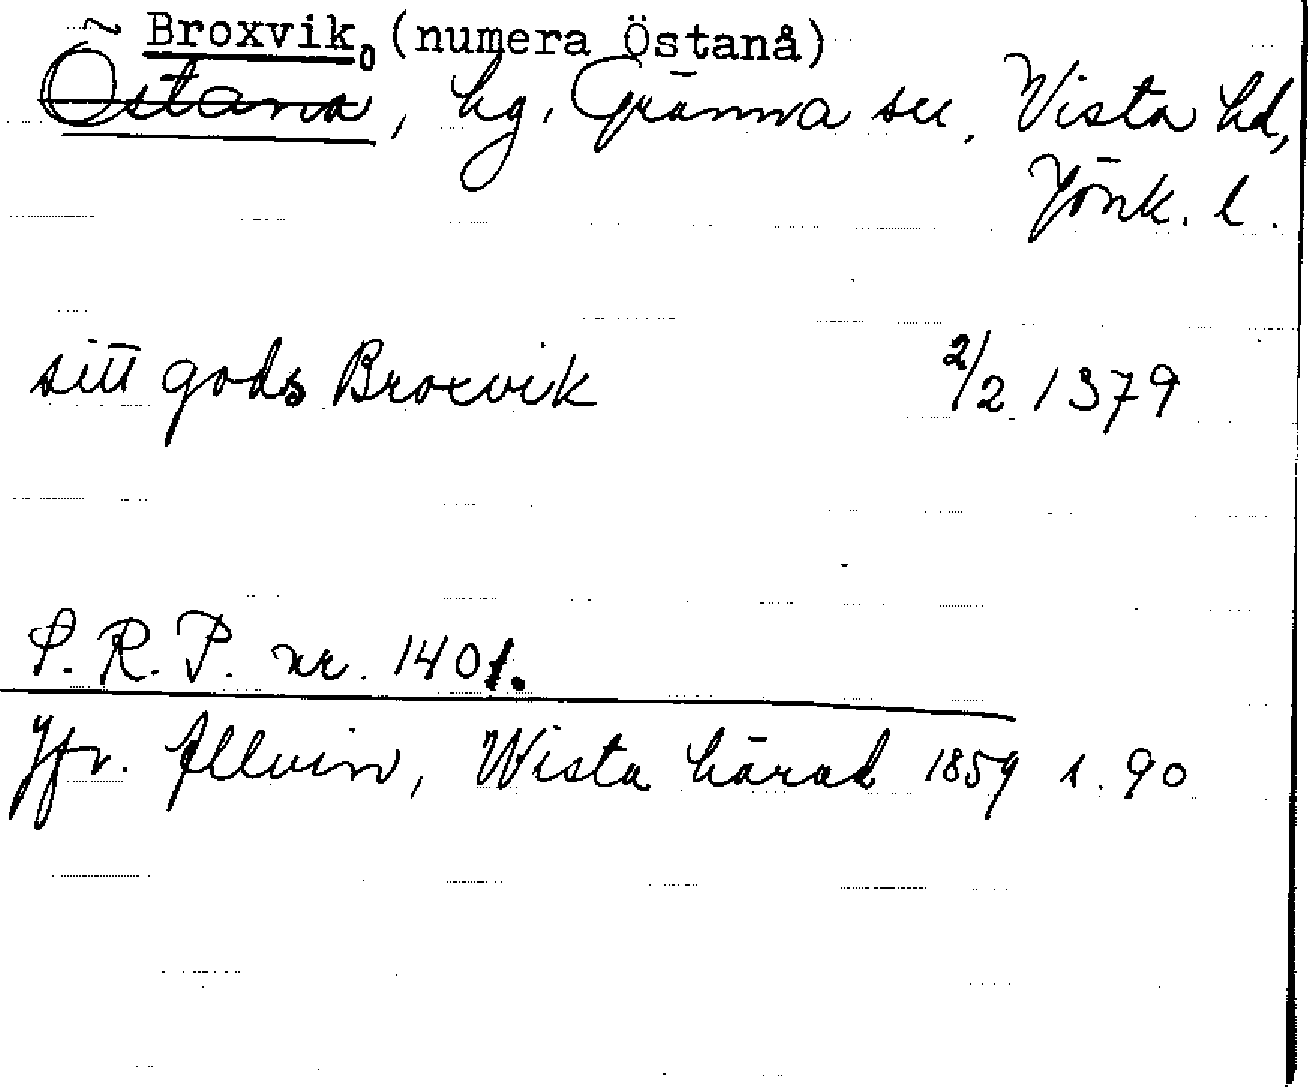 Broxvik (numera Östanå)
Östanå, hg, Gränna sn, Vista hd,
Jönk. l.
sitt gods Broxvik 2/2 1379
S. R. P. nr. 1401.
Jfr. Allvin, Wista härad 1859 s. 90